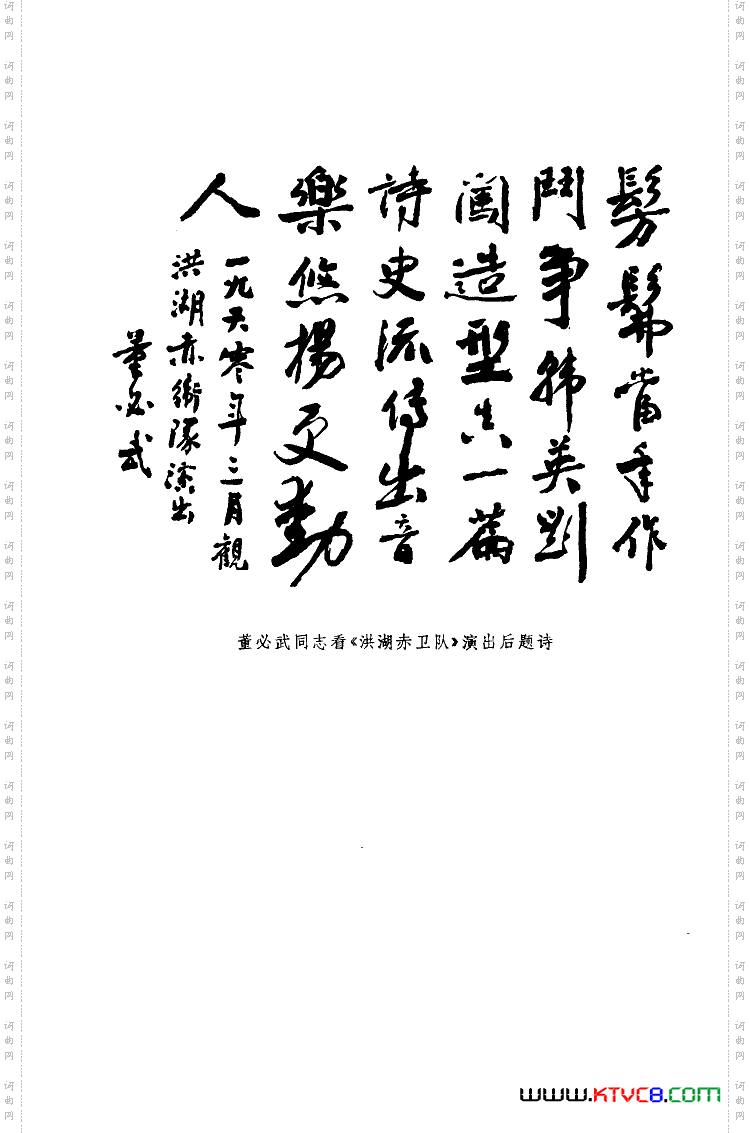 髣髴當年作
鬥爭韩英剅
闖造型真一篇
詩史流傳出音
樂悠揚更動
人
一九六零年三月觀
洪湖赤衛隊演出
董必武
董必武同志看《洪湖赤卫队》演出后题诗
词曲网
www.KTVC8.com